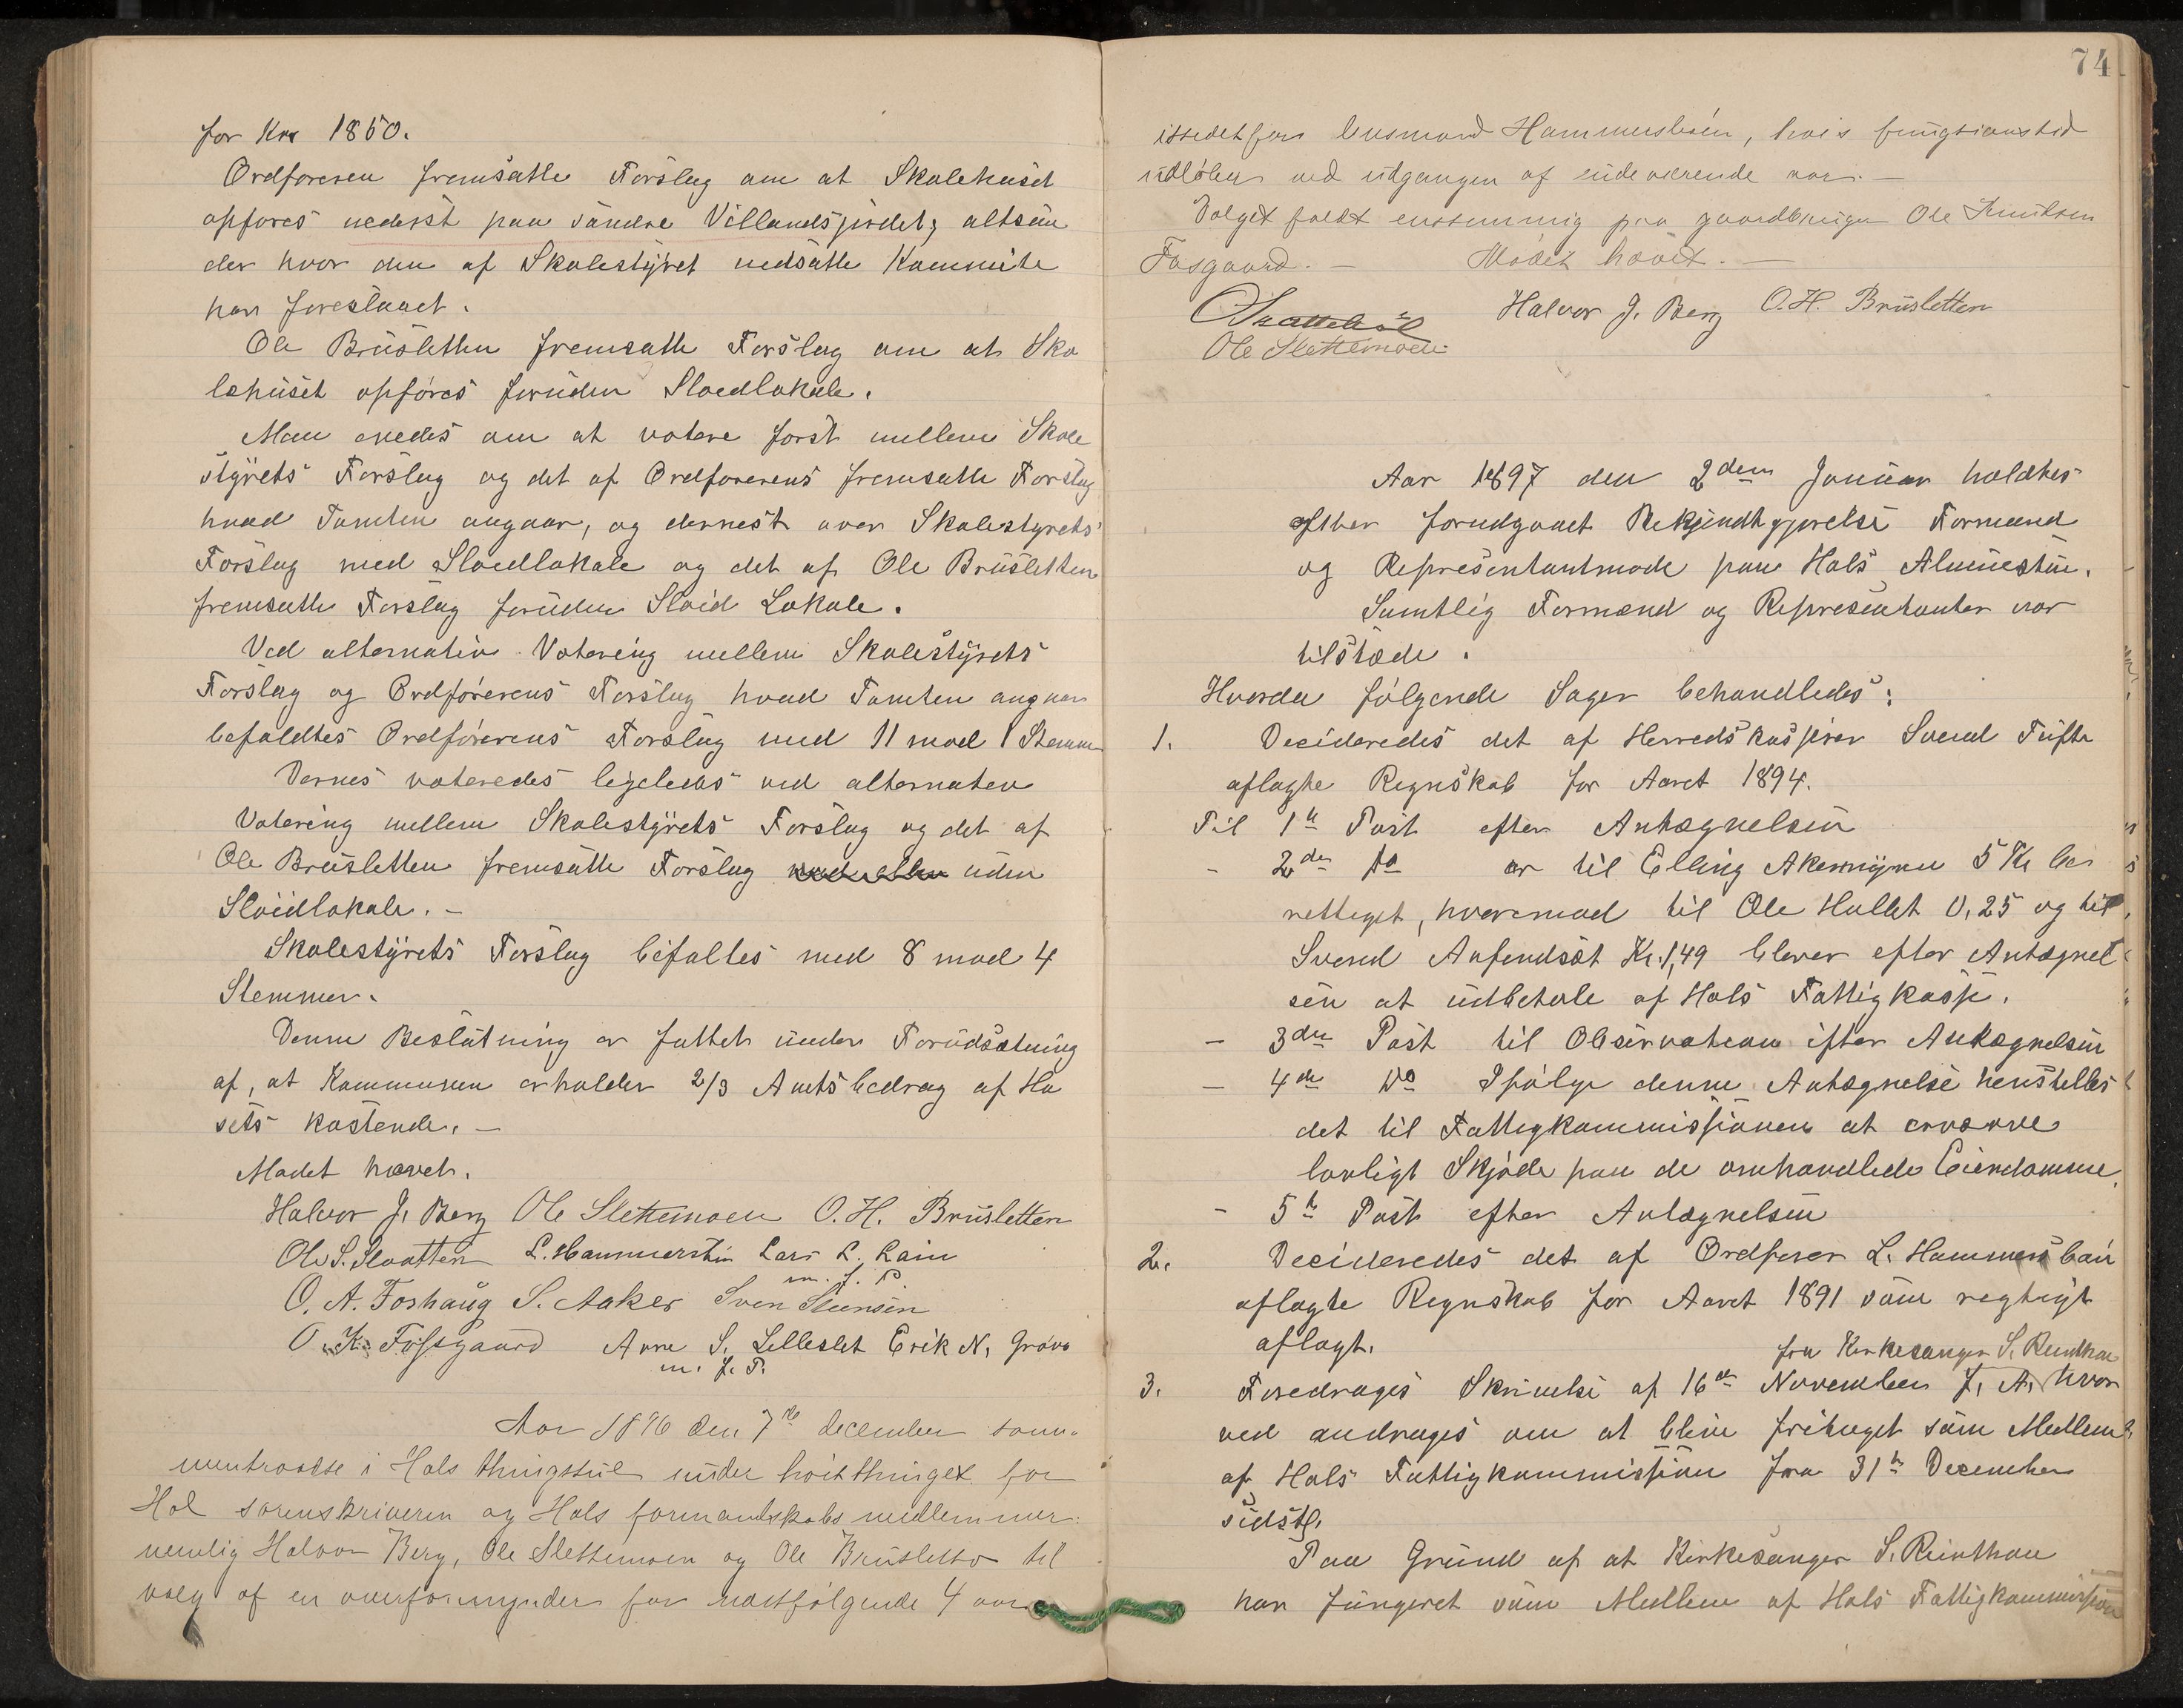 for Kr 1850.
Ordføreren fremsatte Forslag om at Skolehuset
opføres nederst paa søndre Villandsjordet, altsaa
der hvor den af Skolestyret nedsatte Kommite
har foreslaaet.
Ole Brusletten fremsatte Forslag om at Sko
lehuset opføres foruden Sloedlokale.
Man enedes om at votere først mellem Skole
styrets Forslag og det af Ordførerens fremsatte Forslag
hvad Tomten angaar, og dernest over Skolestyrets
Forslag med Sloedlokale og det af Ole Bruslетten
fremsatte Forslag foruden Sloid Lokale.
Ved alternativ Votering mellem Skolestyrets
Forslag og Ordførerens Forslag hvad Tomten angaar
befaldtes Ordførerens Forslag med 11 mod 1 Stemme
Dernes voteredes ligeledes ved alternativ
Votering mellem Skolestyrets Forslag og det af
Ole Bruslетten fremsatte Forslag uden
Sloidlokale. -
Skolestyrets Forslag bifaltes med 8 mod 4
Stemmer.
Denne Beslutning er fattet under Forudsætning
af, at Kommunen erholder 2/3 Amtsbedrag af Hu
sets kostende. -
Mødet hævet.
Halvor J. Berg Ole Slettemoen O. H. Bruslетten
Ole S. Slaatten L. Hammersbøn Lars L. Rain
m. f. P.
O. A. Foshaug S. Aaker Sven Steinsen
O. K. Fossgaard Arne S. Lilleslet Erik N. Grøvo
m. f. P.
Aar 1896 den 7de december sam-
mentraadte i Hols thingstue under høstthinget for
Hol sorenskriveren og Hols formandskabs medlemmer:
nemlig Halvor Berg, Ole Slettemoen og Ole Brusletto til
valg af en overformynder for næstfølgende 4 aar
74
istedetfor lensmand Hammersbøen, hvis fungtionstid
udløber ved utgangen af indeværende aar. -
Valget faldt enstemmig paa gaardbruger Ole Knutsen
Fosgaard. - Mødet hævet. -
Halvor J. Berg O. H. Bruslетten
Ole Slettemoen
Aar 1897 den 2den Januar holdtes
efther forudgaaet Bekjendtgjørelse Formænd
og Representantmøde paa Hols Almuestue.
Samtlig Formænd og Representanter var
tilstæde.
Hvorda følgende Sager behandledes:
1. Decideredes det af Herredskasserer Svend Tufte
aflagte Regnskab for Aaret 1894.
Til 1te Post efter Antægnelsen
- 2den Do er til Elling Akermyren 5 Kr be
rettiget, hvoremod til Ole Hallet 0,25 og til
Svend Anfendsøt Kr. 1,49 blever efter Antægnel
sen at udbetale af Hols Fattigkasse.
- 3die Post til Observation efter Antægnelsen
- 4de Do Ifølge denne Antægnelse henstilles
det til Fattigkommissionen at erværve
lovligt Skjøde paa de omhandlede Eiendomme.
- 5te Post efter Antægnelsen
2. Decideredes det af Ordfører L. Hammersbøn
aflagte Regnskab for Aaret 1891 som regtigt
aflagt.
fra Kirkesanger S. Reinthon
3. Foredroges Skrivelse af 16de November f. A. hvor
ved andrages om at blive fritaget som Medlem
af Hols Fattigkommission fra 31te December
sidstl.
Paa Grund af at Kirkesanger S. Reinthon
har fungeret som Medlem af Hols Fattigkommission